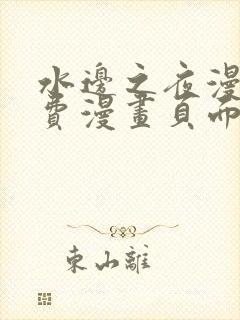 水邊之夜漫
費漫畫頁面
東山離